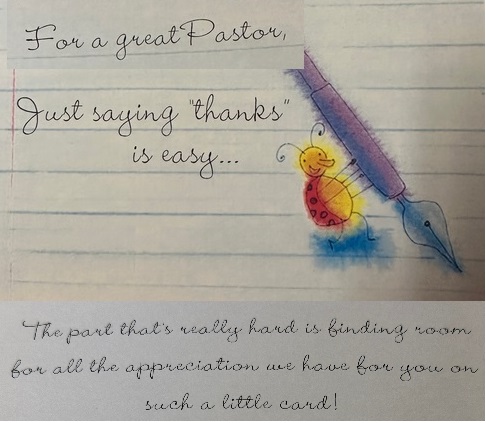 For a great Pastor,
Just saying "thanks"
is easy...
The part that's really hard is finding room
for all the appreciation we have for you on
such a little card!